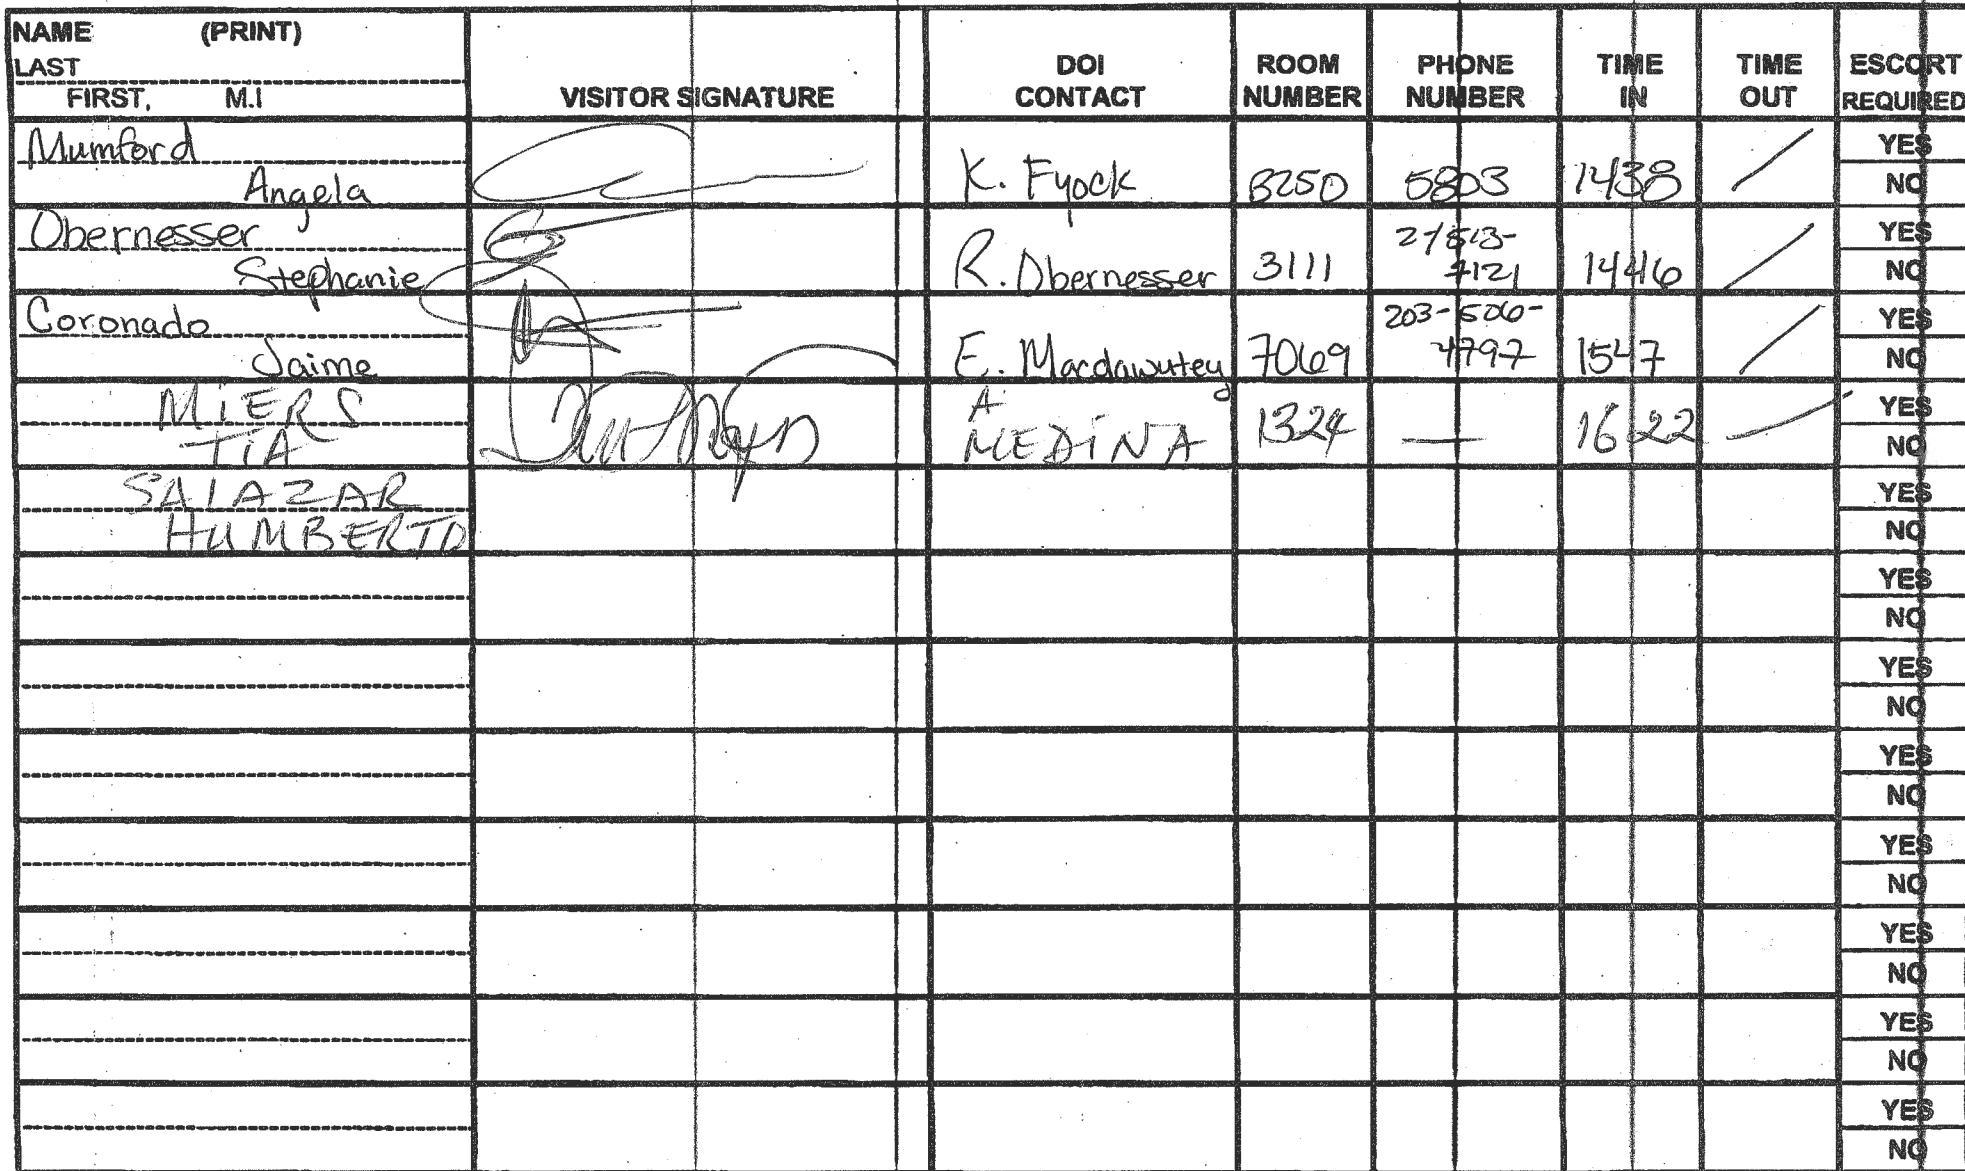 NAME (PRINT)
LAST
FIRST, M.I
VISITOR SIGNATURE
DOI
CONTACT
ROOM
NUMBER
PHONE
NUMBER
TIME
IN
TIME
OUT
ESCORT
REQUIRED
Mumford
Angela
K. Fyock
5803
1438
YES
NO
Obernesser
Stephanie
R. Obernesser
3111
1446
YES
NO
Coronado
Jaime
E.
7069
203-506-
4797
1547
YES
NO
MIERS
TIA
A.
MEDINA
1324
—
1622
YES
NO
SALAZAR
HUMBERTO
YES
NO
YES
NO
YES
NO
YES
NO
YES
NO
YES
NO
YES
NO
YES
NO